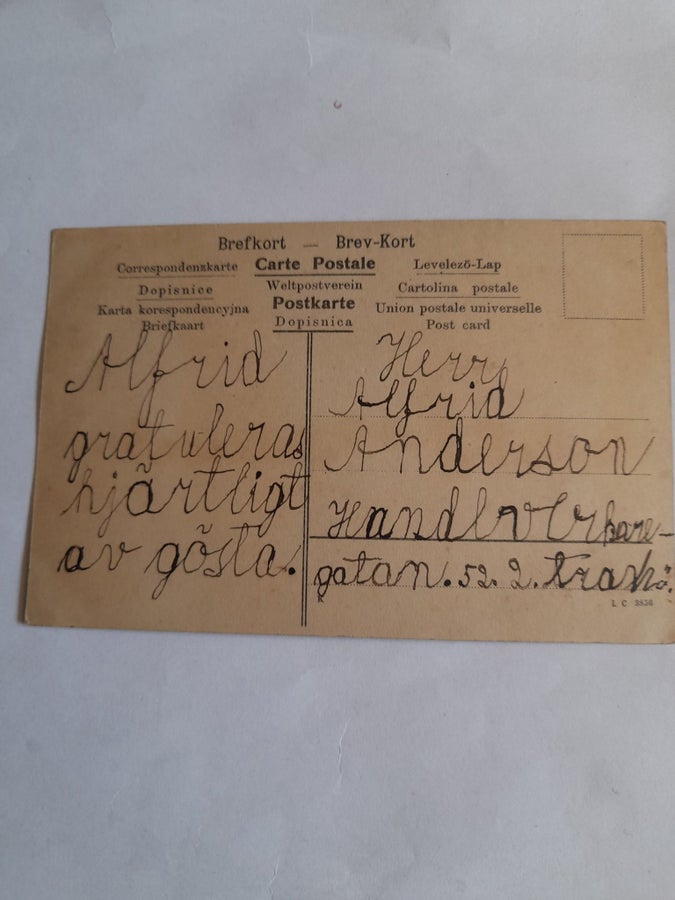 Brefkort — Brev-Kort
Correspondenzkarte Carte Postale Levelező-Lap
Dopisnice Weltpostverein Cartolina postale
Karta korespondencyjna Postkarte Union postale universelle
Briefkaart Dopisnica Post card
Alfrid
gratuleras
hjärtligt
av gösta.
Herr
Alfrid
Anderson
Handtverkare-
gatan. 52. 2. trakö.
K
L C 3856